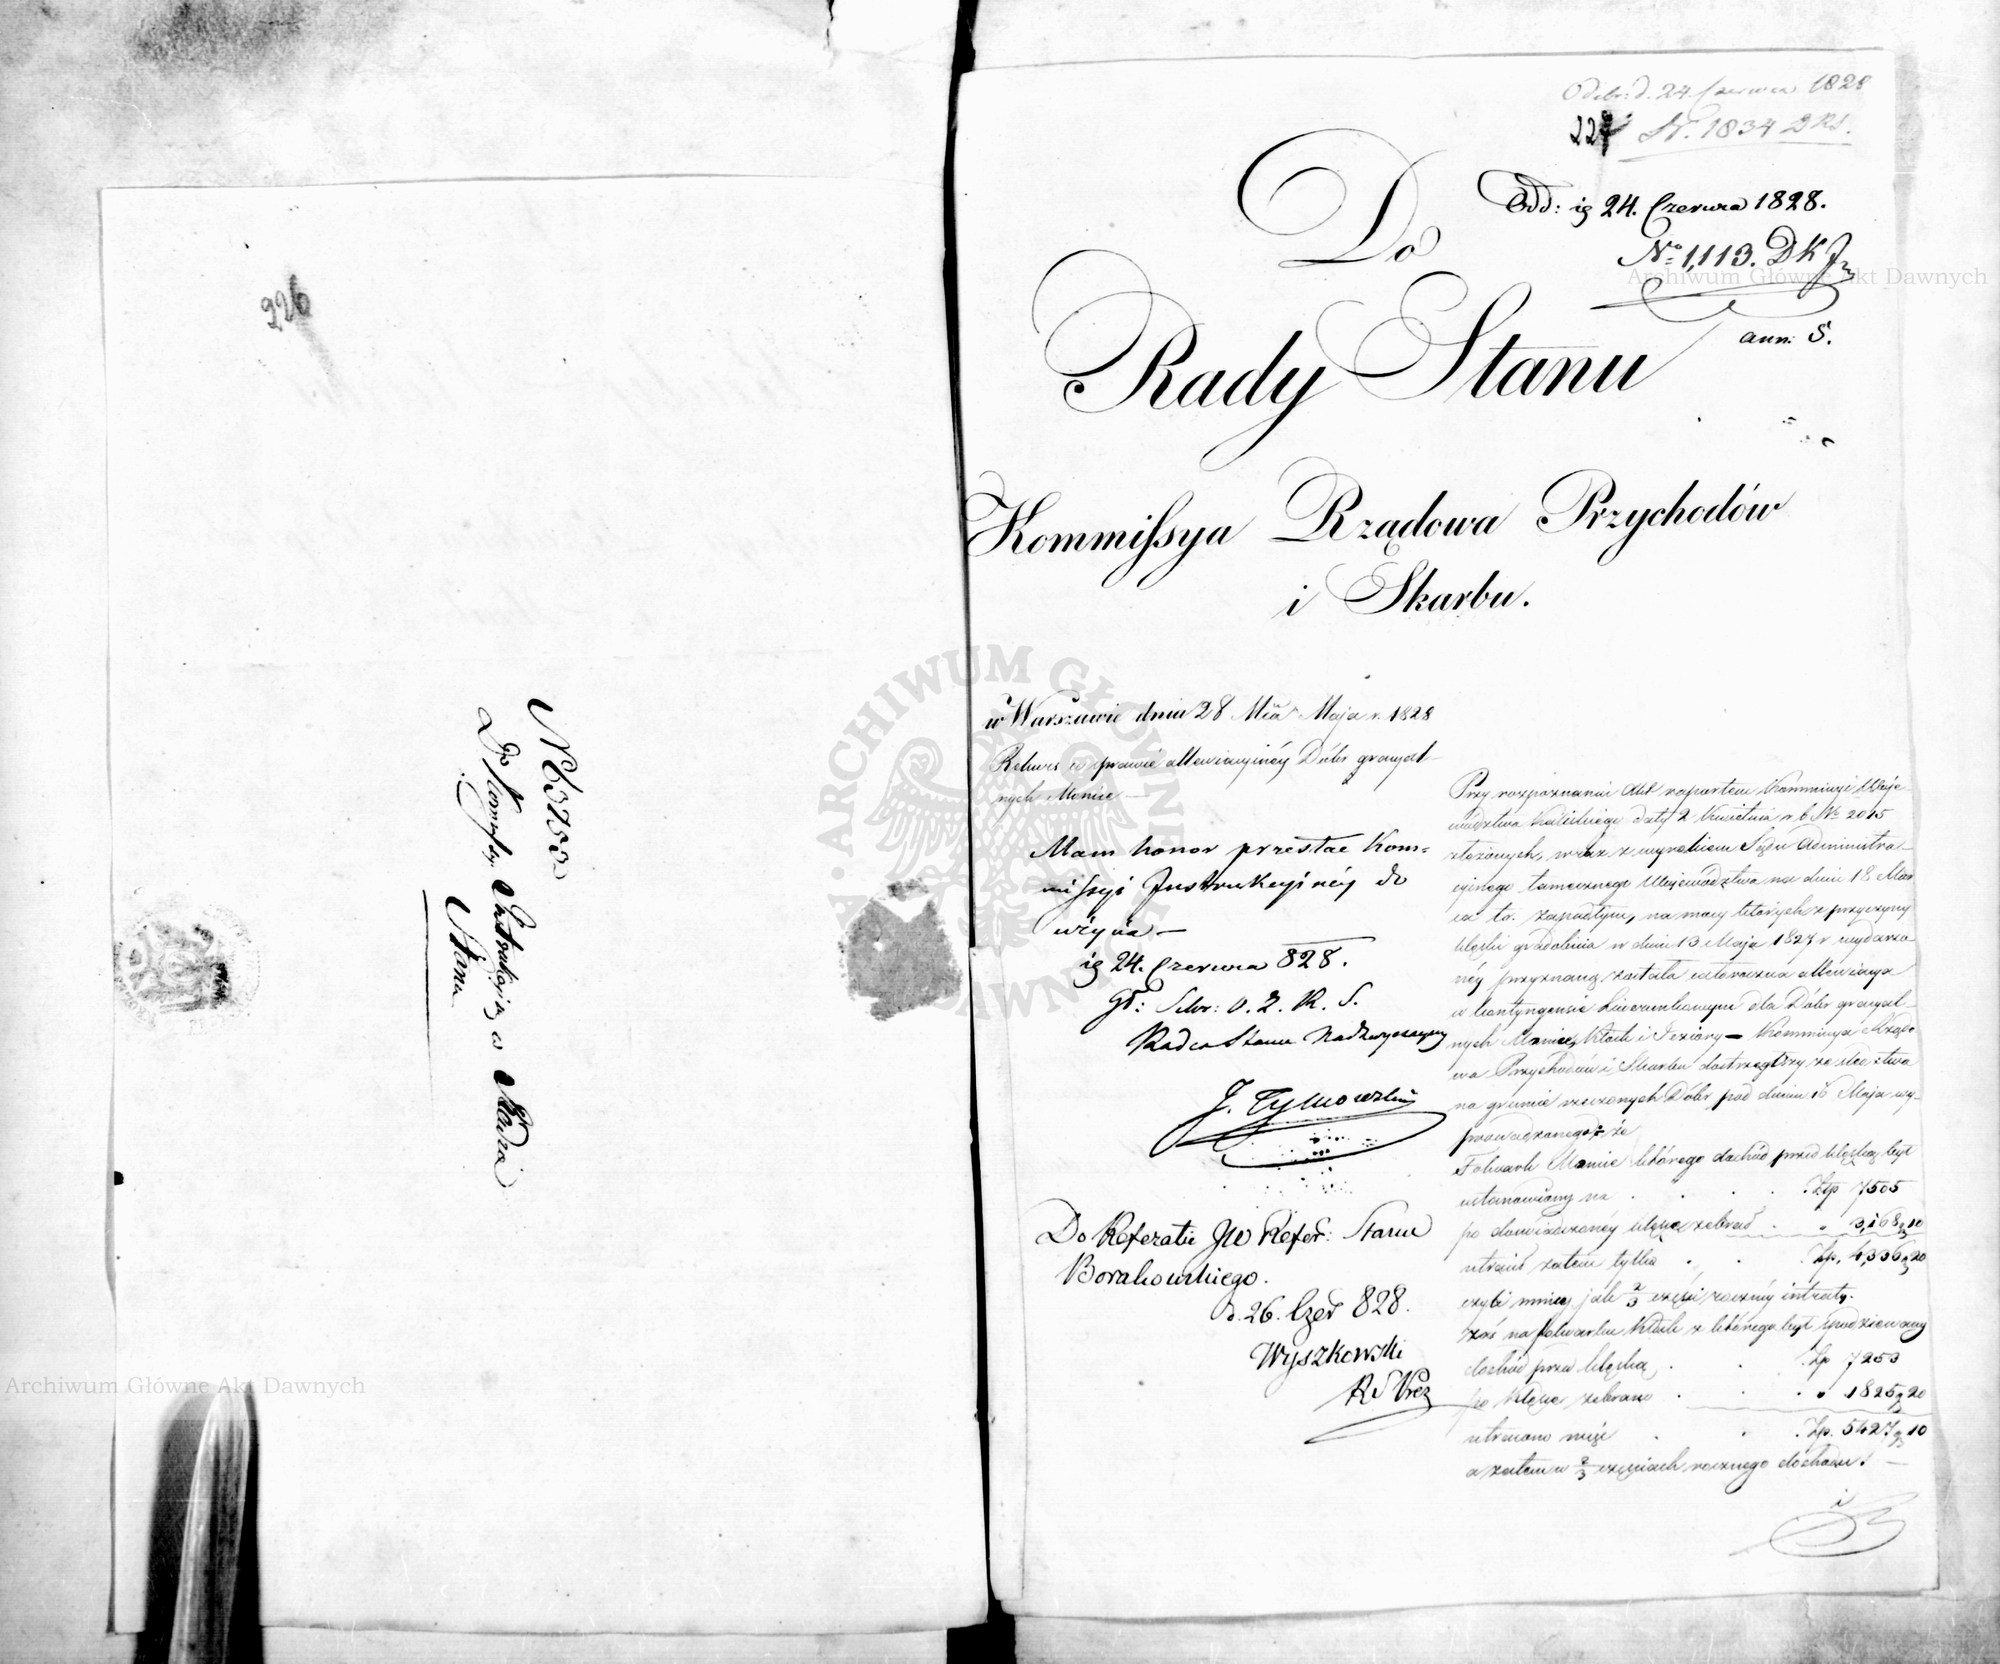 226
N 63755
Do Kommissyi Instrukcyinéy w Radzie
Stanu
Odebr: d. 24 Czerwca 1828
227 N. 1834 DRS.
Odd: ig 24. Czerwca 1828.
No 1,113. DKJ
ann: 5.
Do
Rady Stanu
Kommissya Rządowa Przychodów
i Skarbu.
w Warszawie dnia 28 Mca Maja r. 1828
Rekurs w sprawie allewiacyinéy Dóbr
nych Manice
Mam honor przesłać Kom=
missyi Instrukcyinéy do
użycia —
ig 24. Czerwca 828.
Gł: Sekr: R. S.
Radca Stanu Nadzwyczayny
J. Tymowski
Do Referatu JW Refer: Stanu
Borakowskiego.
d. 26. Czer 828.
Wyszkowski
RS Prez
Przy rozpoznaniu Akt raportem Kommissyi Woje-
wództwa Kaliskiego daty 2 Kwietnia r b No 2015
złożonych, wraz z wyrokiem Sądu Administra-
cyinego tamecznego Województwa na dniu 18 Mar
ca tr. zapadłym, na mocy których z przyczyny
klęski gradobicia w dniu 13 Maja 1827 r wydarzo-
néy przyznaną została całoroczna allewiacya
w kontyngensie liwerunkowym dla Dóbr
nych Manice, Kłock i Jeziory — Kommissya Rządo
wa Przychodów i Skarbu dostrzegłszy ze śledztwa
na gruncie rzeczonych Dóbr pod dniem 16 Maja wy-
prowadzonego że
Folwark Manice którego dochód przed klęską był
ustanowiony na . . . . Złp 7505
po doświadczonéy klęsce zebrał . . " 3,168 g 10
utracił zatem tylko . . . Zp. 4,336 g 20
czyli mniéy jak 2/3 części roczney intraty.
zaś na folwarku Kłock z którego był spodziewany
dochód przed klęską . . . Zp 7253
po klęsce zebrano . . . " 1825 g 20
utracono więc . . . Zp. 5427 g 10
a zatem w 2/3 częściach rocznego dochodu. —
i
Archiwum Główne Akt Dawnych
Archiwum Główne Akt Dawnych
ARCHIWUM GŁÓWNE AKT DAWNYCH